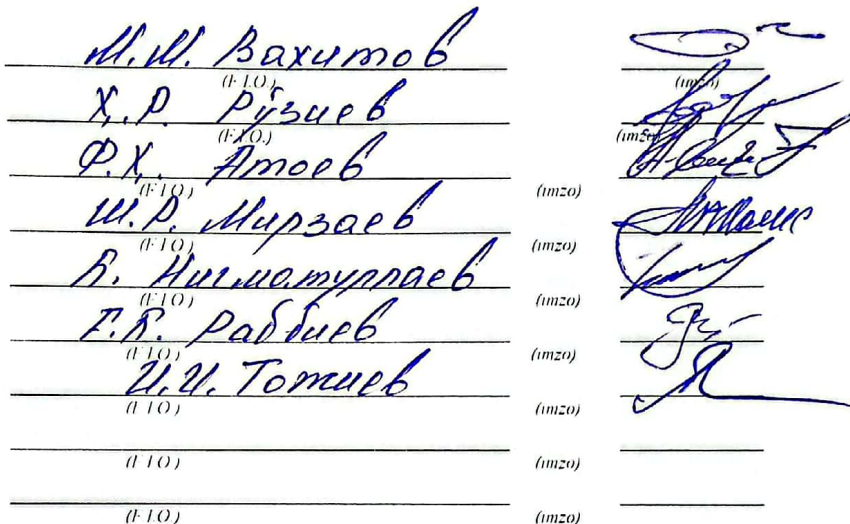 М.М. Вахитов
(F.I.O.) (imzo)
Х.Р. Рўзиев
(F.I.O.) (imzo)
Ф.Х. Атоев
(F.I.O) (imzo)
Ш.Р. Мирзаев
(F.I.O) (imzo)
К. Нигматуллаев
(F.I.O) (imzo)
Раббиев
(F.I.O) (imzo)
И.И. Тожиев
(F.I.O) (imzo)
(F.I.O) (imzo)
(F.I.O) (imzo)